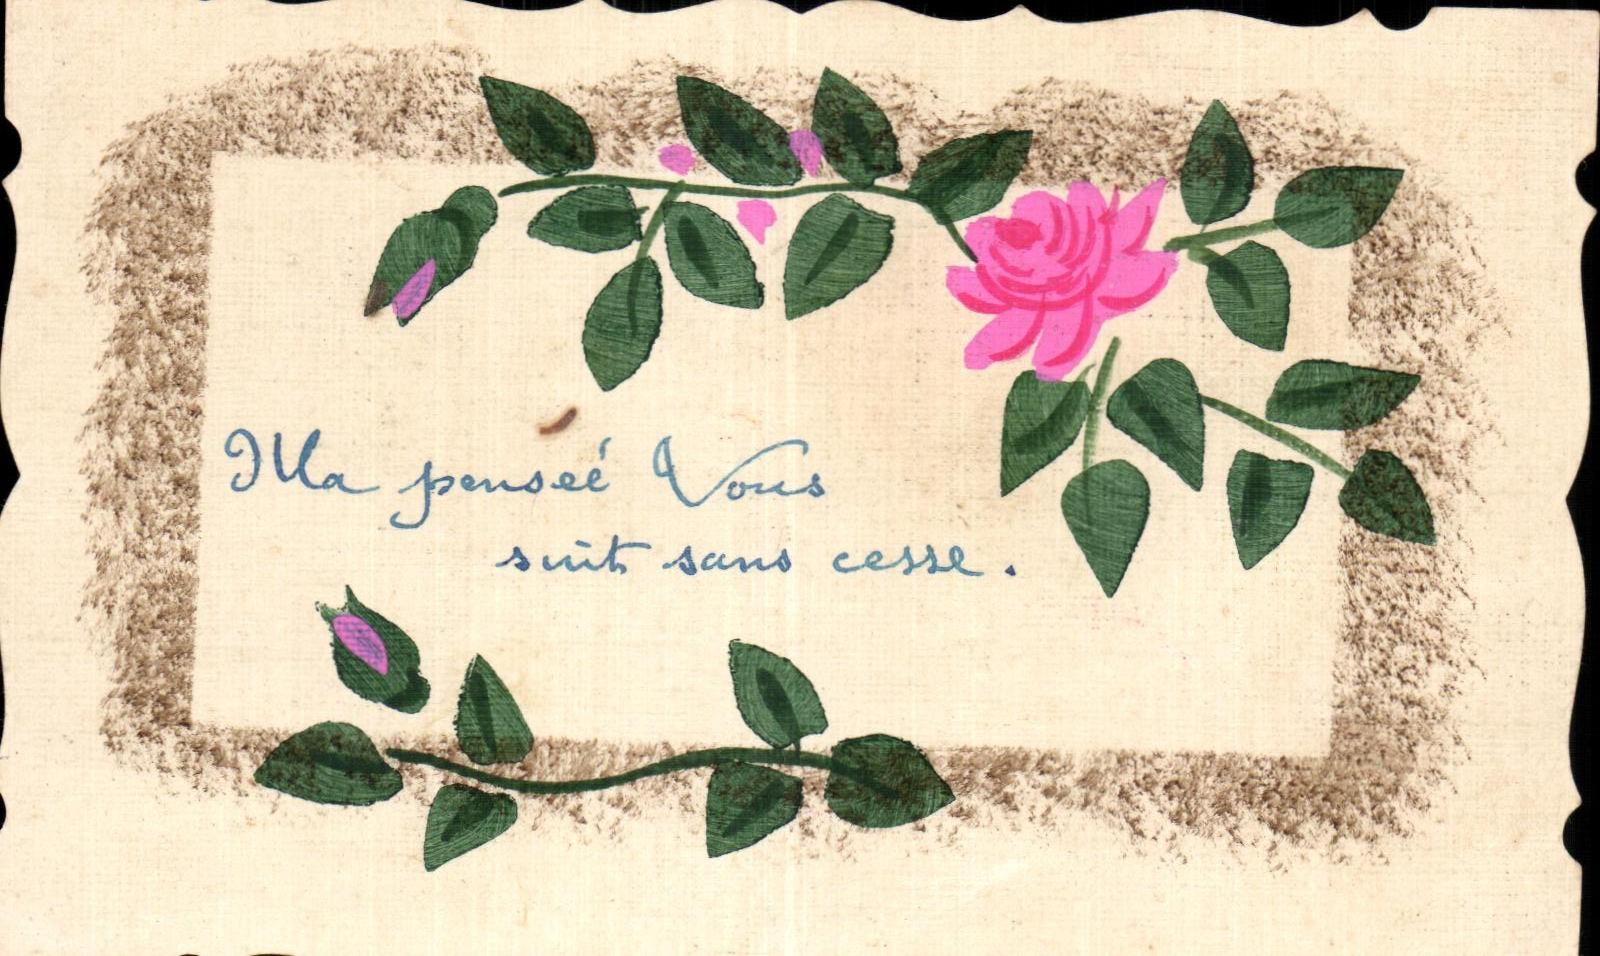 Ma penseé Vous
suit sans cesse.